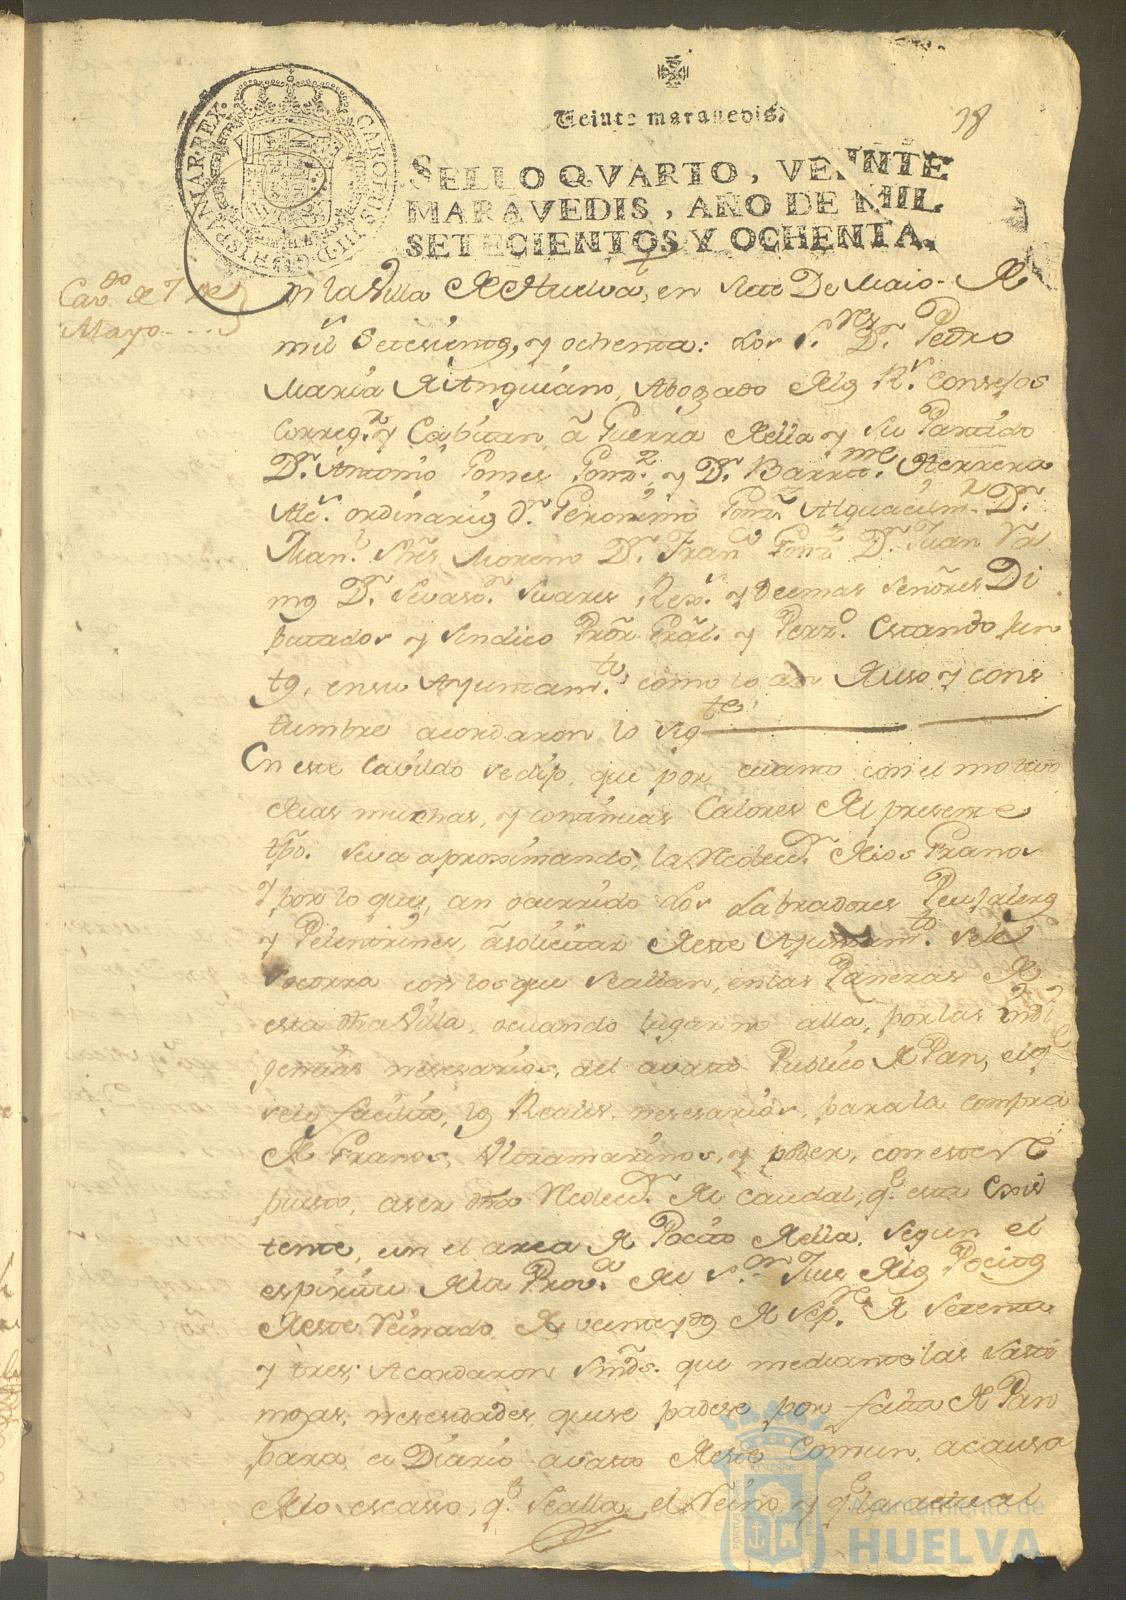 38
Veinte maravedis.
SELLO QVARTO, VEINTE
MARAVEDIS, AÑO DE MIL
SETECIENTOS Y OCHENTA.
CAROLUS III D G HISPANIAR REX
Cavdo de 7 de
Mayo
En la Villa de Huelva, en siete De Maio de
mil Setesientos, y ochenta: los Sres Dn Pedro
Maria de Anguiano, Abogado de los Rs. Consejos
Corregr y Capitan à Guerra della y su Partido
Dn Antonio Gomes Gonz. y Dn Barttme Herrera
Alcs. ordinarios Dn Geronimo Gonz Alguacil mr Dn
Manl. Moreno Dn Franco Gonz Dn Juan
Dn Sevasn. Suares Rexs. y Demas Señores Di
putados y Sindico Pror Gral. y Perzo. Estando jun
tos, en su Ayuntamto como lo an de uso y cons
tumbre acordaron lo sigte
En este Cavildo se dijo, que por cuanto con el motivo
de las muchas, y continuas Calores del presente
tpo. se va aproximando, la de los Granos
y por lo que, an ocurrido los Labradores Peujaleros
y Pelentrines, à solicitar de este Ayuntamto. se le
socorra con los que se allan, en las Paneras de
esta dha Villa,
nesesarios, del avasto Publico de Pan,
se les facilite, los Reales, nesesarios, para la compra
de Granos, Ultramarinos, y poder, con este Re
puesto, aser dha del caudal, qe. esta Exis
tente, en el arca de Pocito della. segun el
espiritu de la Prova del Sor Jues de los Pocitos
de este Reinado de veinte y dos de Sepe. de Setenta
y tres; Acordaron Smds. que mediante las lasti
mosas, nesesidades, que se padese por falta de Pan
para el Diario avasto de este Comun, a causa
de lo escasso, qe. se alla, el Reino, y qe. la actual
Ayuntamiento de
HUELVA